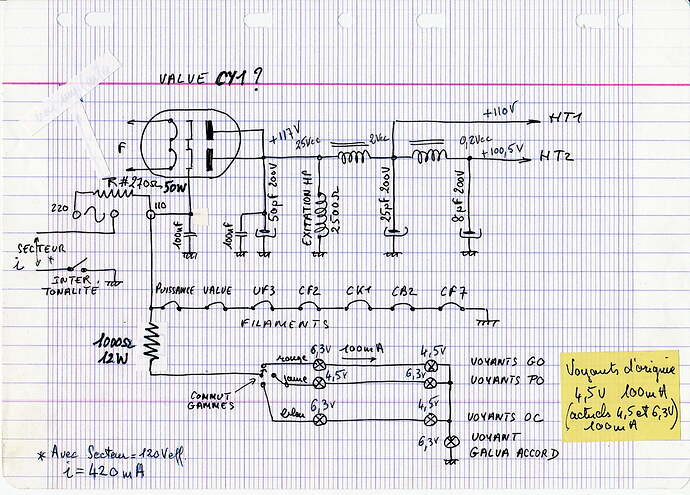 VALVE CY1 ?
+110V
HT1
+117V
25Vcc
2Vcc
0,2Vcc
+100,5V
HT2
F
R # 270Ω 50W
220
110
100nF
100nF
50µF 200V
EXITATION HP
2500Ω
25µF 200V
8µF 200V
SECTEUR
i *
INTER.
TONALITE
PUISSANCE VALVE UF3 CF2 CK1 CB2 CF7
FILAMENTS
1000Ω
12W
COMMUT
GAMMES
rouge 6,3V 100mA 4,5V VOYANTS GO
jaune 4,5V 6,3V VOYANTS PO
bleu 6,3V 4,5V VOYANTS OC
6,3V VOYANT
GALVA ACCORD
Voyants d'origine
4,5V 100mA
(actuels 4,5 et 6,3V)
100mA
* Avec Secteur = 120Veff
i = 420mA